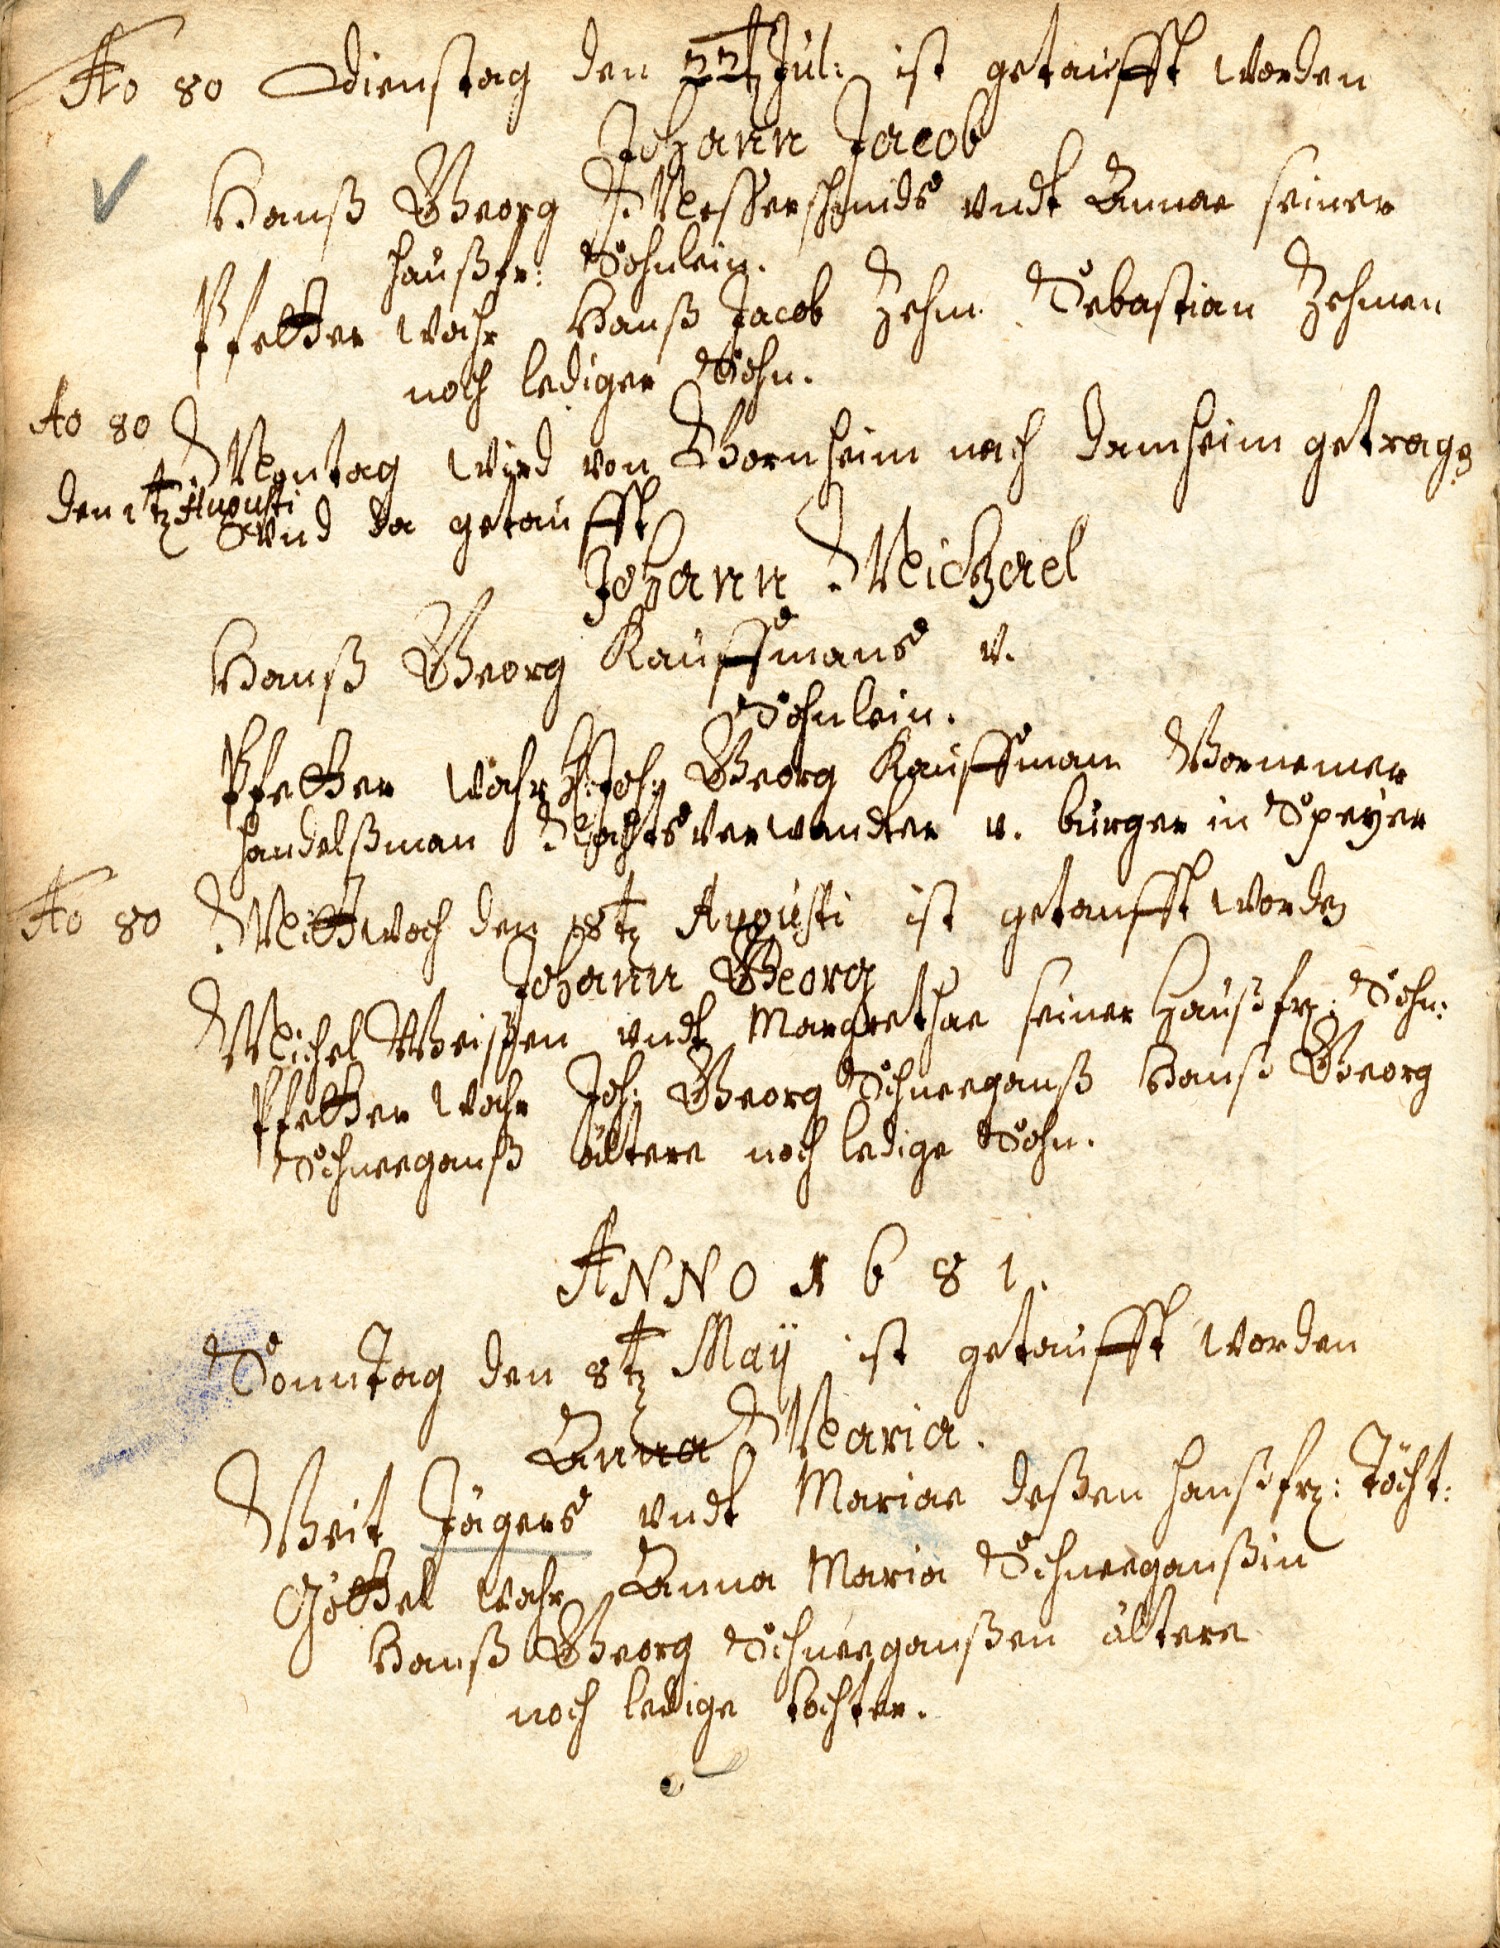 Ao 80 Dienstag den 22t Jul: ist getaufft worden
Johann Jacob
Hanß Georg Messerschmids undt Annae seiner
haußfr: Söhnlein.
Pfetter wahr Hanß Jacob Zehm Sebastian Zehmen
noch lediger Sohn.
Ao 80
Montag wird von Bornheim nach Damheim getragen
den 1t Augusti
Und da getaufft
Johann Michael
Hanß Georg Kauffmans v.
Söhnlein.
Pfetter wahr H. Joh: Georg Kauffman Vornemer
Handelßman Rahtsverwandter v. burger in Speyer
Ao 80 Mittwoch den 18t Augusti ist getaufft worden
Johann Georg
Michel Weißen undt Margrethae seiner Haußfr: Sohn:
Pfetter wahr Joh: Georg Schneeganß Hanß Georg
Schneeganß ältere noch ledige Sohn.
ANNO 1681.
Sonntag den 8t Maÿ ist getaufft worden
Anna Maria.
Veit Jägers undt Mariae deßen haußfr: Töcht:
Göttel wahr Anna Maria Schneeganßin
Hanß Georg Schneeganßen ältere
noch ledige tochter.